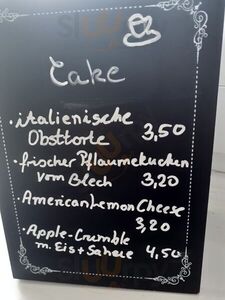 Cake
• italienische
Obsttorte 3,50
• frischer Pflaumekuchen
vom Blech 3,20
• American Lemon Cheese
3,20
• Apple-Crumble
m. Eis + Sahne 4,50